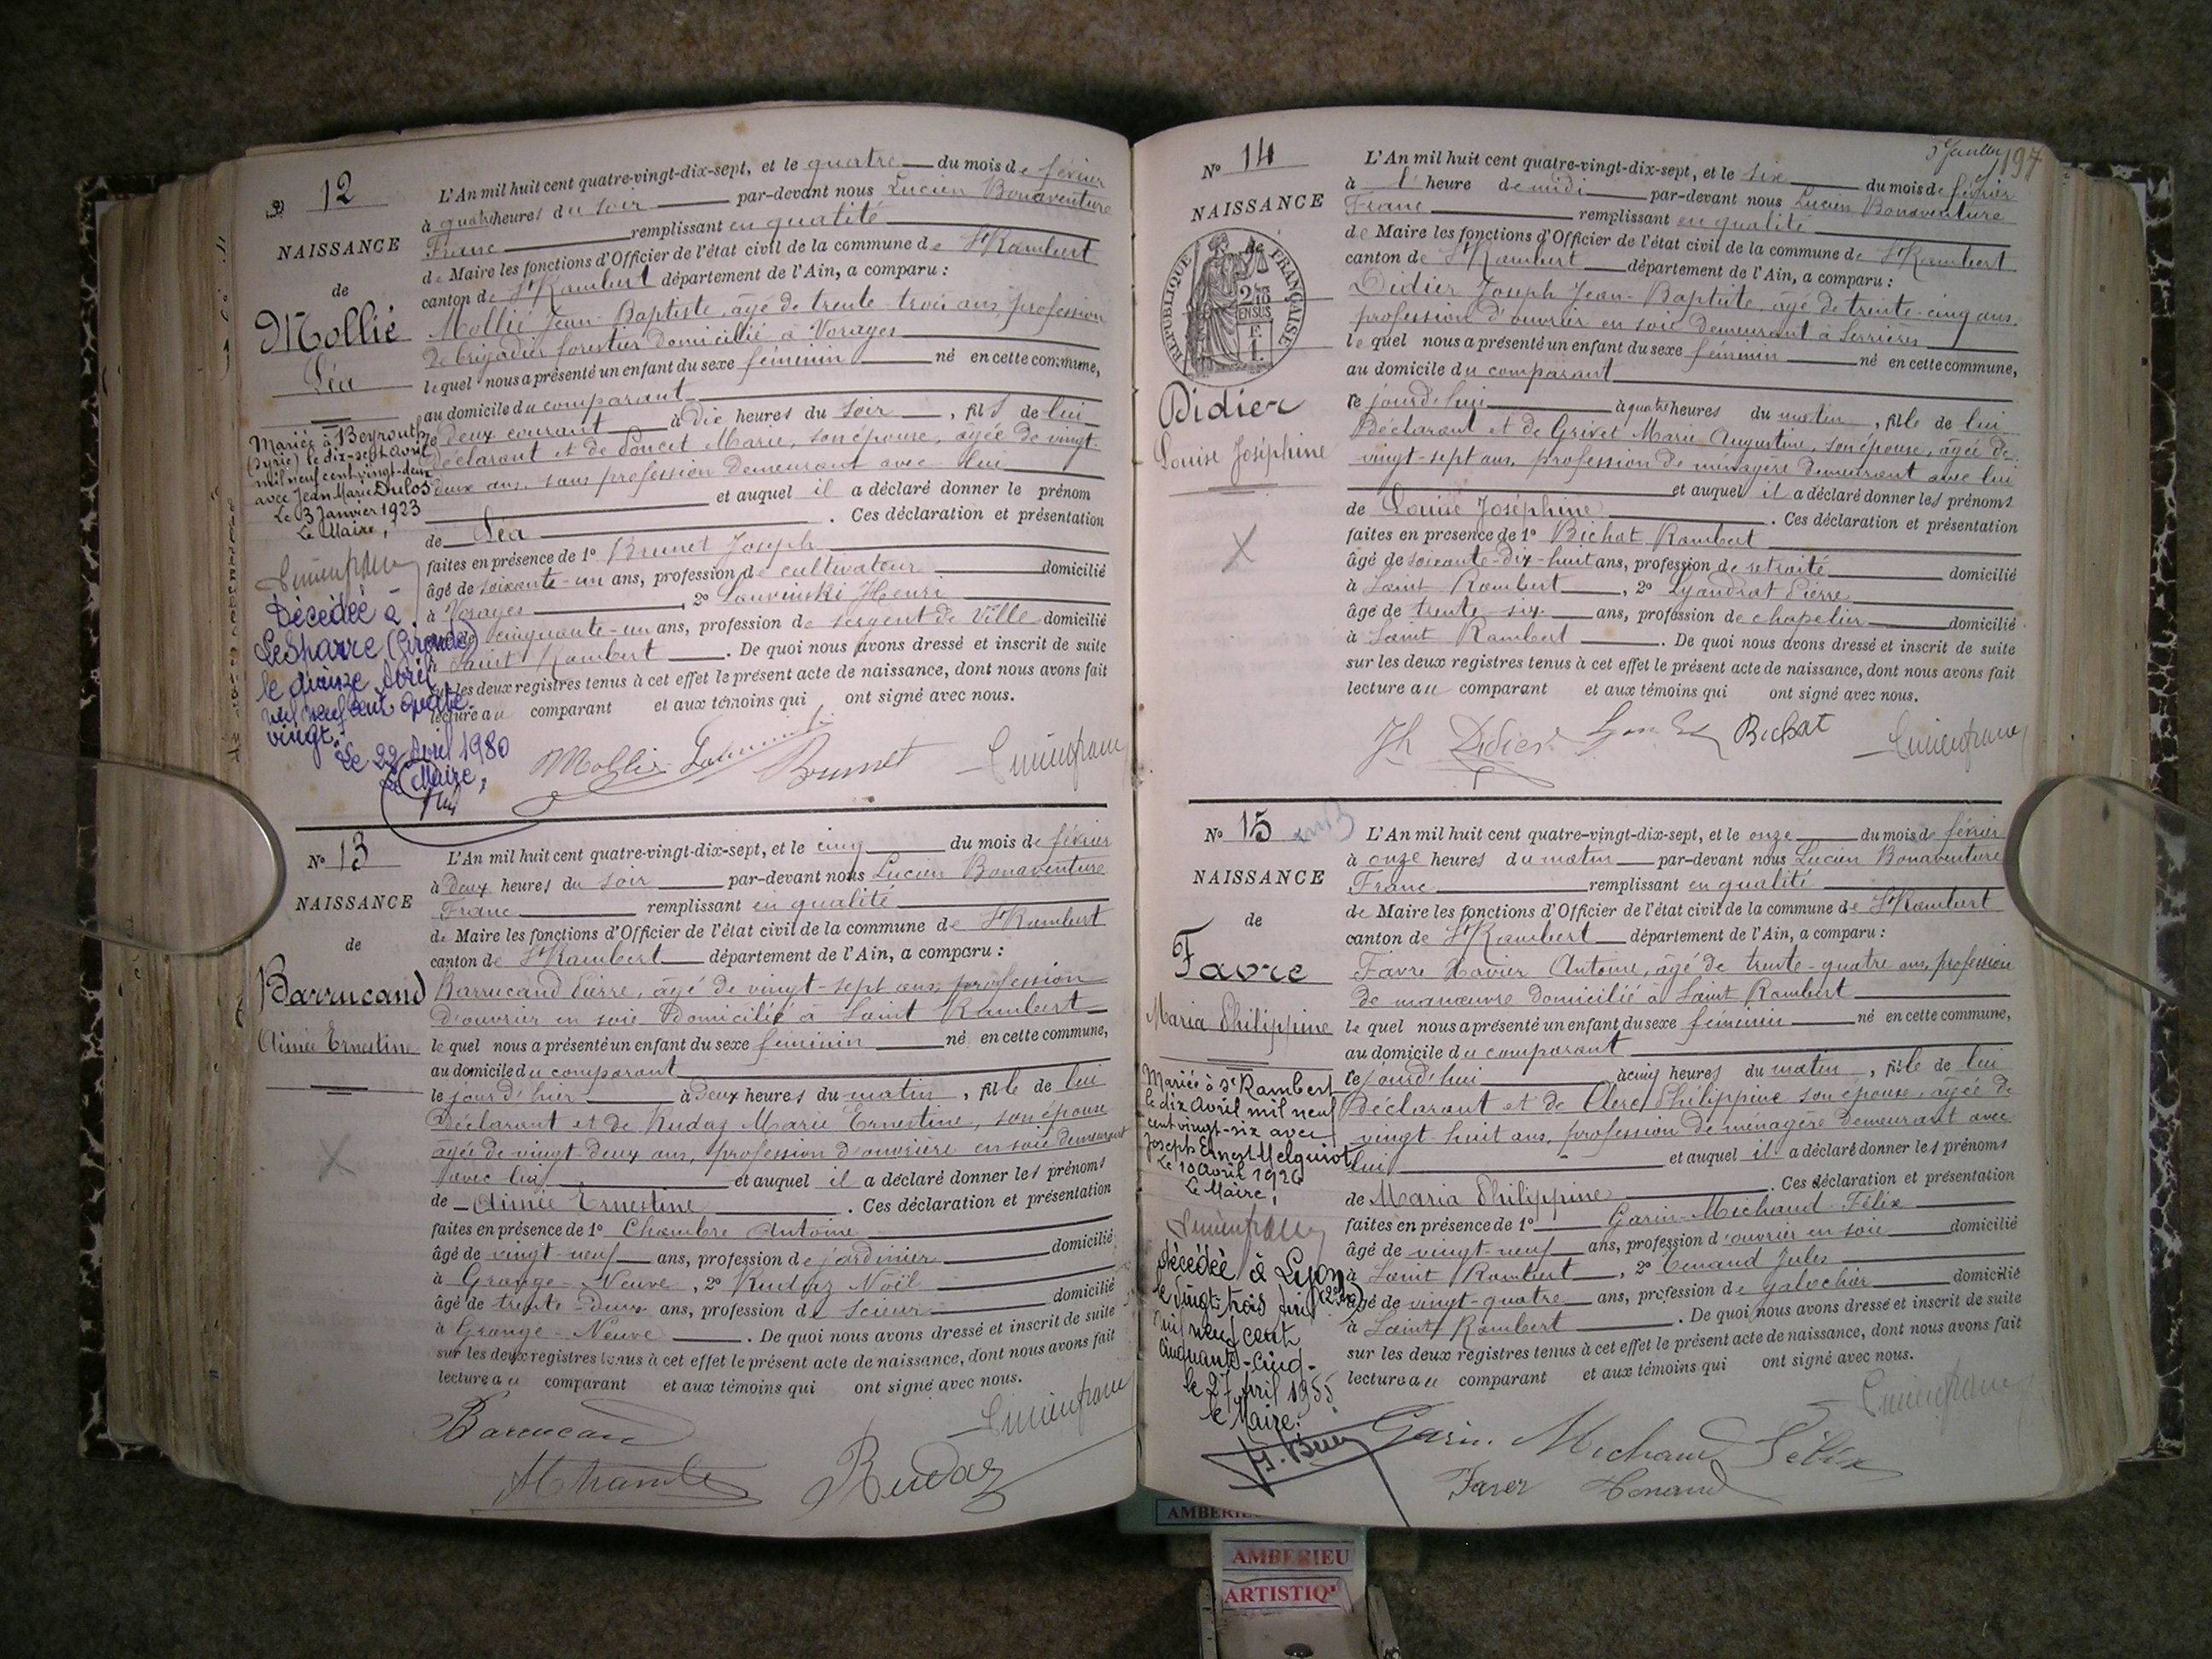 N° 12
NAISSANCE
de
Mollié
Léa
Mariée à Beyrouth
(Syrie) le dix-sept avril
mil neuf cent vingt-deux
avec Jean Marie Dulos
Le 3 Janvier 1923
Le Maire,
Décédée à
(Gironde)
le quinze Avril
mil neuf cent quatre
vingt.
Le 22 Avril 1980
Le Maire,
L'An mil huit cent quatre-vingt-dix-sept, et le quatre du mois de février
à quatre heures du soir par-devant nous Lucien Bonaventure
Franc remplissant en qualité
de Maire les fonctions d'Officier de l'état civil de la commune de St Rambert
canton de St Rambert département de l'Ain, a comparu :
Mollié Jean-Baptiste, âgé de trente-trois ans, profession
de brigadier forestier domicilié à Vorages
lequel nous a présenté un enfant du sexe féminin né en cette commune,
au domicile du comparant
le deux courant à dix heures du soir, fille de lui
déclarant et de Poncet Marie, son épouse, âgée de vingt-
deux ans, sans profession demeurant avec lui
et auquel il a déclaré donner le prénom
de Léa. Ces déclaration et présentation
faites en présence de 1° Brunet Joseph
âgé de soixante-un ans, profession de cultivateur domicilié
à Vorages, 2° Henri
âgé de cinquante-un ans, profession de sergent de Ville domicilié
à Saint Rambert. De quoi nous avons dressé et inscrit de suite
sur les deux registres tenus à cet effet le présent acte de naissance, dont nous avons fait
lecture au comparant et aux témoins qui ont signé avec nous.
Mollié Brunet Lucien franc
N° 13
NAISSANCE
de
Barrucand
Aimée Ernestine
L'An mil huit cent quatre-vingt-dix-sept, et le cinq du mois de février
à deux heures du soir par-devant nous Lucien Bonaventure
Franc remplissant en qualité
de Maire les fonctions d'Officier de l'état civil de la commune de St Rambert
canton de St Rambert département de l'Ain, a comparu :
Barrucand Pierre, âgé de vingt-sept ans, profession
d'ouvrier en soie domicilié à Saint Rambert
lequel nous a présenté un enfant du sexe féminin né en cette commune,
au domicile du comparant
le jour d'hier à deux heures du matin, fille de lui
déclarant et de Rudaz Marie Ernestine, son épouse
âgée de vingt-deux ans, profession d'ouvrière en soie demeurant
avec lui et auquel il a déclaré donner les prénoms
de Aimée Ernestine. Ces déclaration et présentation
faites en présence de 1° Chambre Antoine
âgé de vingt-neuf ans, profession de jardinier domicilié
à Grange-Neuve, 2° Rudaz Noël
âgé de trente-deux ans, profession de scieur domicilié
à Grange-Neuve. De quoi nous avons dressé et inscrit de suite
sur les deux registres tenus à cet effet le présent acte de naissance, dont nous avons fait
lecture au comparant et aux témoins qui ont signé avec nous.
Barrucand Lucien franc
Rudaz
197
N° 14
NAISSANCE
de
RÉPUBLIQUE FRANÇAISE
Didier
Louise Joséphine
L'An mil huit cent quatre-vingt-dix-sept, et le six du mois de février
à l' heure de midi par-devant nous Lucien Bonaventure
Franc remplissant en qualité
de Maire les fonctions d'Officier de l'état civil de la commune de St Rambert
canton de St Rambert département de l'Ain, a comparu :
Didier Joseph Jean-Baptiste, âgé de trente-cinq ans,
profession d'ouvrier en soie demeurant à Serrières
lequel nous a présenté un enfant du sexe féminin né en cette commune,
au domicile du comparant
le jourd'hui à quatre heures du matin, fille de lui
déclarant et de Grivet Marie Augustine, son épouse, âgée de
vingt-sept ans, profession de ménagère demeurant avec lui
et auquel il a déclaré donner les prénoms
de Louise Joséphine. Ces déclaration et présentation
faites en présence de 1° Bichat Rambert
âgé de soixante-dix-huit ans, profession de retraité domicilié
à Saint Rambert, 2° Lyandrat Pierre
âgé de trente-six ans, profession de chapelier domicilié
à Saint Rambert. De quoi nous avons dressé et inscrit de suite
sur les deux registres tenus à cet effet le présent acte de naissance, dont nous avons fait
lecture au comparant et aux témoins qui ont signé avec nous.
Jh Didier Bichat Lucien franc
N° 15
NAISSANCE
de
Favre
Maria Philippine
Mariée à St Rambert
le dix Avril mil neuf
cent vingt-six avec
Joseph Ernest Melquiot
Le 10 avril 1926
Le Maire,
Décédée à Lyon
le vingt trois Avril
mil neuf cent
cinquante-cinq.
le 27 Avril 1955
le Maire:
L'An mil huit cent quatre-vingt-dix-sept, et le onze du mois de février
à onze heures du matin par-devant nous Lucien Bonaventure
Franc remplissant en qualité
de Maire les fonctions d'Officier de l'état civil de la commune de St Rambert
canton de St Rambert département de l'Ain, a comparu :
Favre Xavier Antoine, âgé de trente-quatre ans, profession
de manœuvre domicilié à Saint Rambert
lequel nous a présenté un enfant du sexe féminin né en cette commune,
au domicile du comparant
le jourd'hui à cinq heures du matin, fille de lui
déclarant et de Clerc Philippine son épouse, âgée de
vingt-huit ans, profession de ménagère demeurant avec
lui et auquel il a déclaré donner les prénoms
de Maria Philippine. Ces déclaration et présentation
faites en présence de 1° Garin-Michaud Félix
âgé de vingt-neuf ans, profession d'ouvrier en soie domicilié
à Saint Rambert, 2° Tenand Jules
âgé de vingt-quatre ans, profession de galochier domicilié
à Saint Rambert. De quoi nous avons dressé et inscrit de suite
sur les deux registres tenus à cet effet le présent acte de naissance, dont nous avons fait
lecture au comparant et aux témoins qui ont signé avec nous.
Lucien franc
Garin. Michaud Félix
Faver Tenand
AMBERIEU
ARTISTIQ